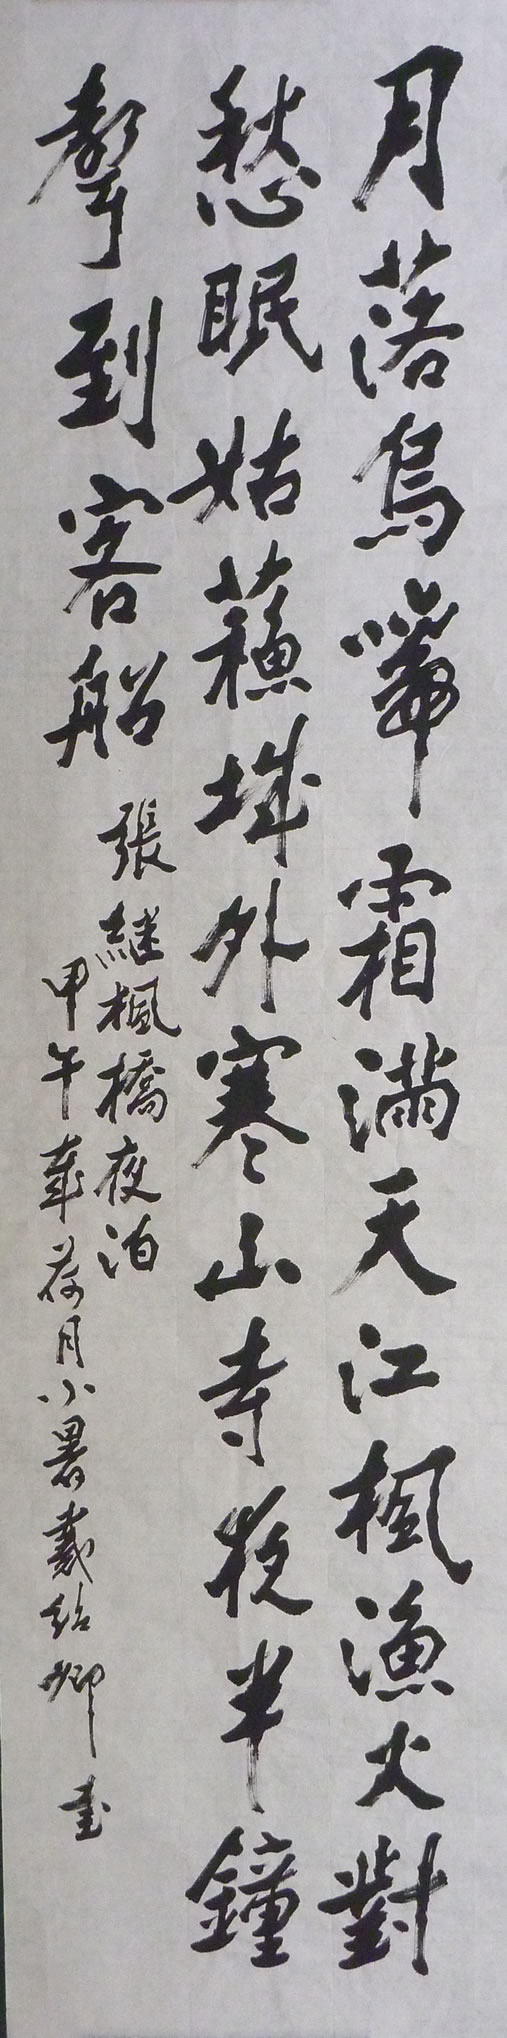 月落烏啼霜滿天江楓漁火對
愁眠姑蘇城外寒山寺夜半鐘
聲到客船
張繼楓橋夜泊
甲午年荷月小暑戴紹卿書